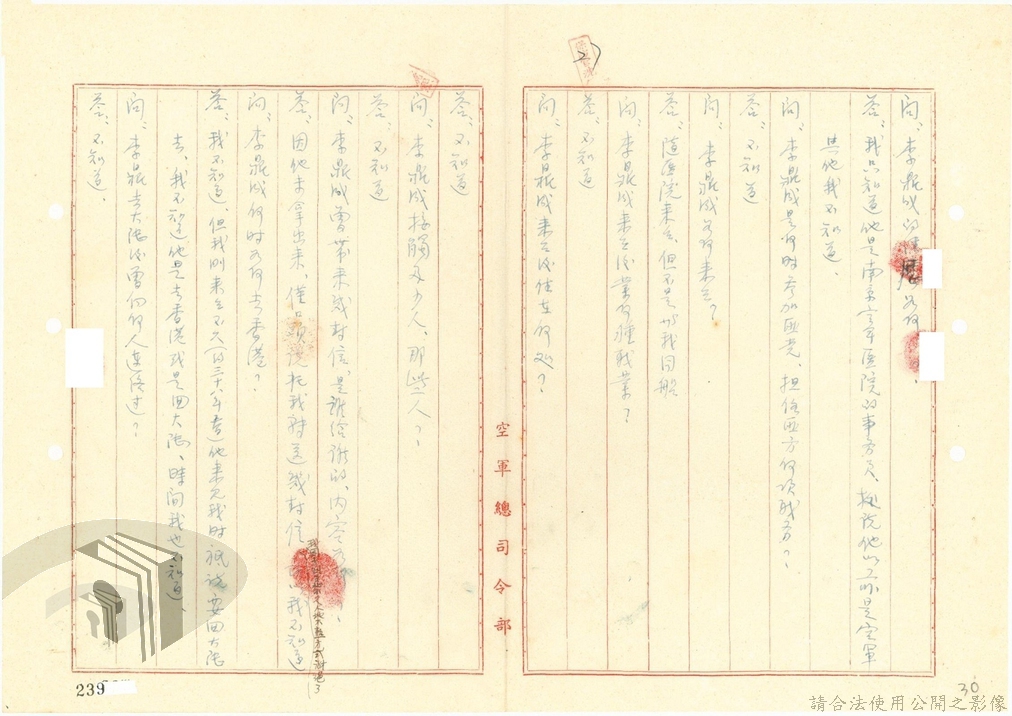 27
問:李鼎成的經歷為何、
答:我只知道他是南京空軍医院的事务員、據說他以前是空軍
其他我不知道、
問:李鼎成是何時參加匪党、担任匪方何項職务?
答:不知道
問:李鼎成為何來台?
答:隨医院來台、但不是與我同船
問:李鼎成來台后業何種職業?
答:不知道
問:李鼎成來台后住在何処?
空軍總司令部
答:不知道
問:李鼎成接觸多少人、那些人?
答:不知道
問:李鼎成曾帶來幾封信、是誰給誰的、內容為
答:因他未拿出來、僅口頭說托我轉這幾封信 我不知道
問:李鼎成何時為何去香港?
答:我不知道、但我剛來台不久(約三十八年春)他來見我時祇說要回大陸
去、我不知道他是去香港或是回大陸、時间我也不知道、
問:李鼎成去大陸后曾向何人連絡过?
答:不知道、
239
30
請合法使用公開之影像